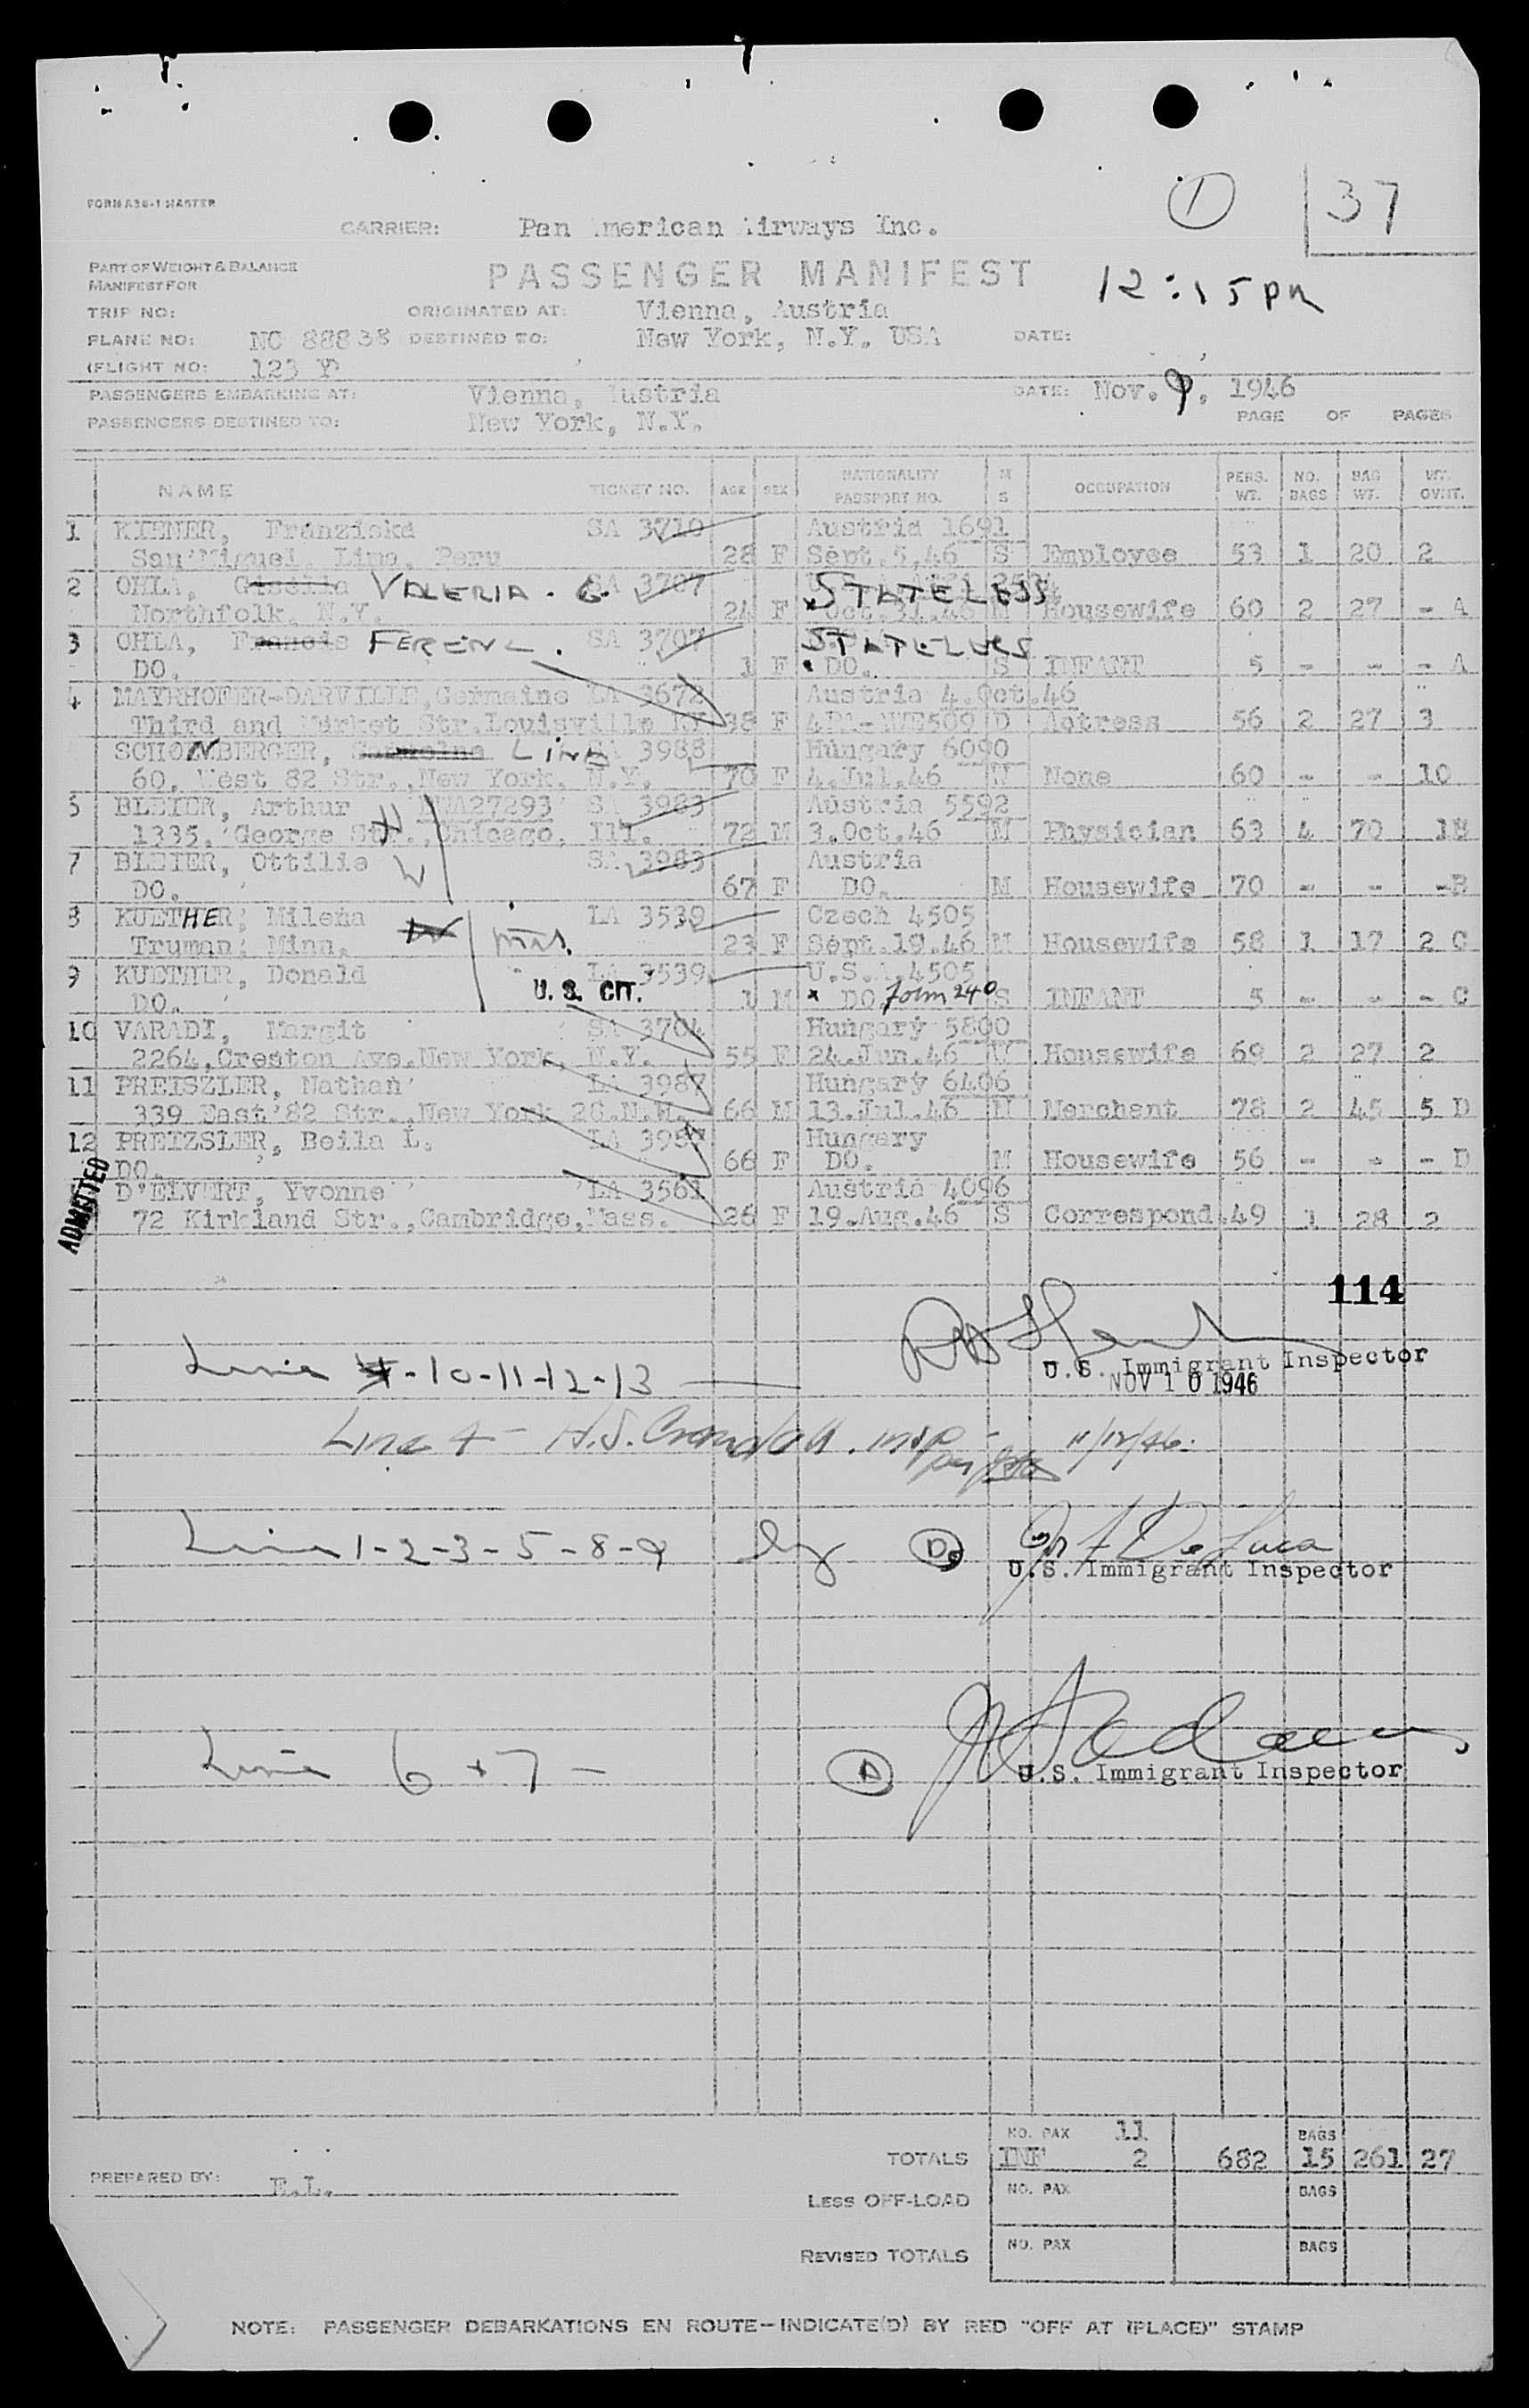 FORM A36-1 MASTER
① 37
CARRIER: Pan American Airways Inc.
PART OF WEIGHT & BALANCE
MANIFEST FOR
PASSENGER MANIFEST
12:15 PM
TRIP NO: ORIGINATED AT: Vienna, Austria
PLANE NO: NC 88838 DESTINED TO: New York, N.Y. USA DATE:
(FLIGHT NO: 123 Y
PASSENGERS EMBARKING AT: Vienna, Austria DATE: Nov. 9, 1946
PASSENGERS DESTINED TO: New York, N.Y. PAGE OF PAGES
NAME TICKET NO. AGE SEX NATIONALITY PASSPORT NO. M S OCCUPATION PERS. WT. NO. BAGS BAG WT. WT. OVWT.
1 KIENER, Franziska SA 3710 Austria 1691
San Miguel, Lima, Peru 28 F Sept.5,46 S Employee 53 1 20 2
2 OHLA, Gisella VALERIA. G. SA 3707 STATELESS
Northfolk, N.Y. 24 F Oct.31.46 M Housewife 60 2 27 - A
3 OHLA, Francis FERENC. SA 3707 STATELESS
DO. 1 F DO. S INFANT 5 - - - A
4 MAYRHOFER-DARVILLE, Germaine LA 3672 Austria 4.Oct.46
Third and Market Str.Louisville KY 38 F D Actress 56 2 27 3
SCHONBERGER, LINA SA 3988 Hungary 6090
60, West 82 Str., New York, N.Y. 70 F 4.Jul.46 W None 60 - - 10
6 BLEIER, Arthur SA 3983 Austria 5592
1335, George Str., Chicago, Ill. 72 M 3.Oct.46 M Physician 63 4 70 1B
7 BLEIER, Ottilie W SA 3983 Austria
DO. 67 F DO. M Housewife 70 - - -B
8 KUETHER, Milena LA 3539 Czech 4505
Truman, Minn. 23 F Sept.19.46 M Housewife 58 1 17 2 C
9 KUETHER, Donald LA 3539 U.S.A. 4505
DO. U. S. CIT. 1 M DO. Form 240 S INFANT 5 - - - C
10 VARADI, Margit SA 3704 Hungary 5800
2264, Creston Ave. New York, N.Y. 55 F 24.Jun.46 W Housewife 69 2 27 2
11 PREISZLER, Nathan LA 3987 Hungary 6406
339 East 82 Str., New York 28.N.Y. 66 M 13.Jul.46 M Merchant 78 2 45 5 D
12 PREIZSLER, Beila L. LA 3987 Hungary
DO. 66 F DO. M Housewife 56 - - - D
ADMITTED
D'ELVERT, Yvonne LA 3561 Austria 4096
72 Kirkland Str., Cambridge, Mass. 26 F 19.Aug.46 S Correspond. 49 1 28 2
114
Line 4-10-11-12-13
U.S. Immigrant Inspector
NOV 10 1946
Line 4 - H.S. Crandall, insp - 11/12/46.
Line 1-2-3-5-8-9 by De Luca
U.S. Immigrant Inspector
Line 6 + 7 - A
U.S. Immigrant Inspector
NO. PAX 11 BAGS
TOTALS INF 2 682 15 261 27
PREPARED BY: E.L.
NO. PAX BAGS
LESS OFF-LOAD
NO. PAX BAGS
REVISED TOTALS
NOTE: PASSENGER DEBARKATIONS EN ROUTE—INDICATE(D) BY RED "OFF AT (PLACE)" STAMP